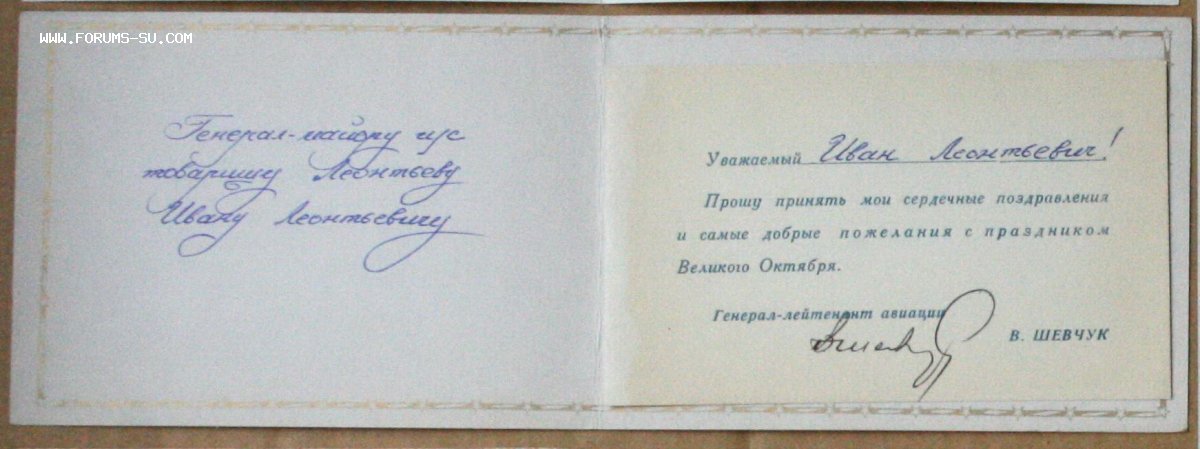 WWW.FORUMS-SU.COM
Генерал-майору и/с
товарищу Леонтьеву
Ивану Леонтьевичу
Уважаемый Иван Леонтьевич!
Прошу принять мои сердечные поздравления
и самые добрые пожелания с праздником
Великого Октября.
Генерал-лейтенант авиации
В. ШЕВЧУК